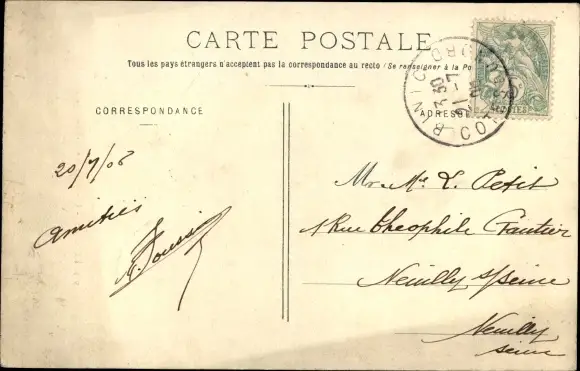 CARTE POSTALE
Tous les pays étrangers n'acceptent pas la correspondance au recto (Se renseigner à la Po
CORRESPONDANCE
ADRESSE
BINIC
COTES DU NORD
3 50
21 -7
POSTES
20/7/06
Amitiés
Mr. Me L. Petit
1 Rue Theophile Gautier
Neuilly s/Seine
Neuilly
Seine